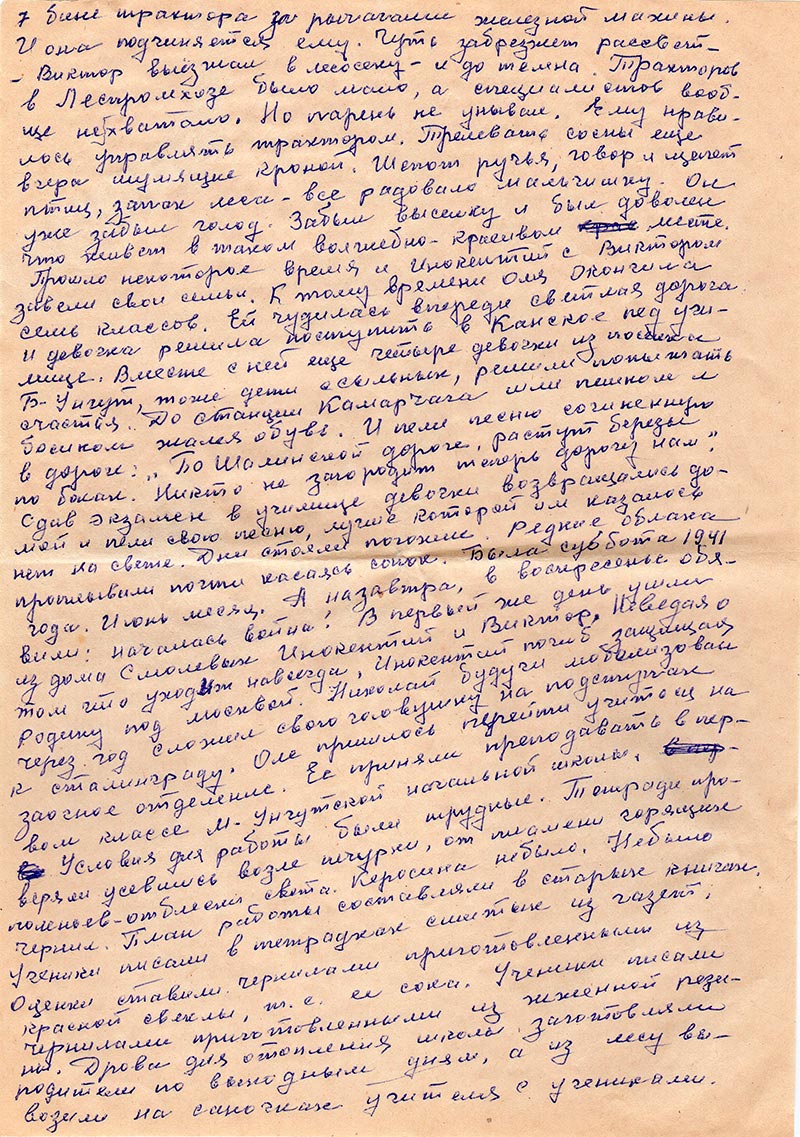 7 бине трактора за рычагами железной махины.
И она подчиняется ему. Чуть забрезжет рассвет-
- Виктор выезжал в лесосеку - и до темна. Тракторов
в Леспромхозе было мало, а специалистов вооб-
ще нехватало. Но парень не унывал. Ему нрави-
лось управлять трактором. Трелевать сосны еще
вчера шумящие кроной. Шепот ручья, говор и щебет
птиц, запах леса - все радовало мальчишку. Он
уже забыл голод. Забыл высылку и был доволен
что живет в таком волшебно-красивом месте.
Прошло некоторое время и Инокентий с Виктором
завели свои семьи. К тому времени Оля окончила
семь классов. Ей чудилась впереди светлая дорога
и девочка решила поступить в Канское пед учи-
лище. Вместе с ней еще четыре девочки из поселка
Б-Унгут, тоже дети ссыльных, решили попытать
счастья. До станции Камарчага шли пешком и
босиком жалея обувь. И пели песню сочиненную
в дороге: „По Шалинской дороге, растут березы
по бокам. Никто не загородит теперь дорогу нам".
Сдав экзамен в училище девочки возвращались до-
мой и пели свою песню, лучше которой им казалось
нет на свете. Дни стояли погожие. Редкие облака
проплывали почти касаясь сопок. Была суббота 1941
года. Июнь месяц. А назавтра, в воскресенье объя-
вили: началась война! В первый же день ушли
из дома Смолевых Инокентий и Виктор. Неведая о
том что уходят навсегда, Инокентий погиб защищая
Родину под Москвой. Николай будучи мобелизован
через год сложил свою головушку на подступах
к Сталинграду. Оле пришлось перейти учиться на
заочное отделение. Ее приняли преподавать в пер-
вом классе М-Унгутской начальной школы.
Условия для работы были трудные. Тетради про-
веряли усевшись возле печурки, от пламени горящих
поленьев-отблески света. Керосина небыло. Небыло
чернил. План работы составляли в старых книгах.
Ученики писали в тетрадках сшитых из газет,
Оценки ставили чернилами приготовленными из
красной свеклы, т.е. ее сока. Ученики писали
чернилами приготовленными из жженной рези-
ны. Дрова для отопления школы заготовляли
родители по выходным дням, а из лесу вы-
возили на саночках учителя с учениками.